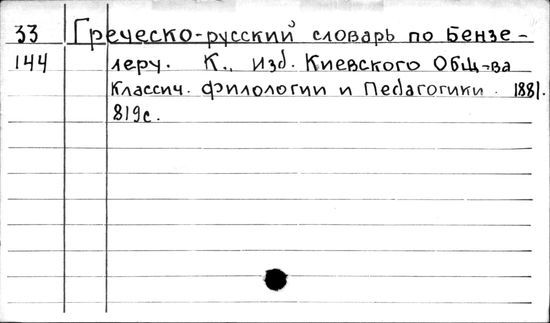 33 Греческо-русский словарь по Бензе-
144 леру. К., Изд. Киевского Общ-ва
Классич. филологии и Педагогики. 1881.
819с.